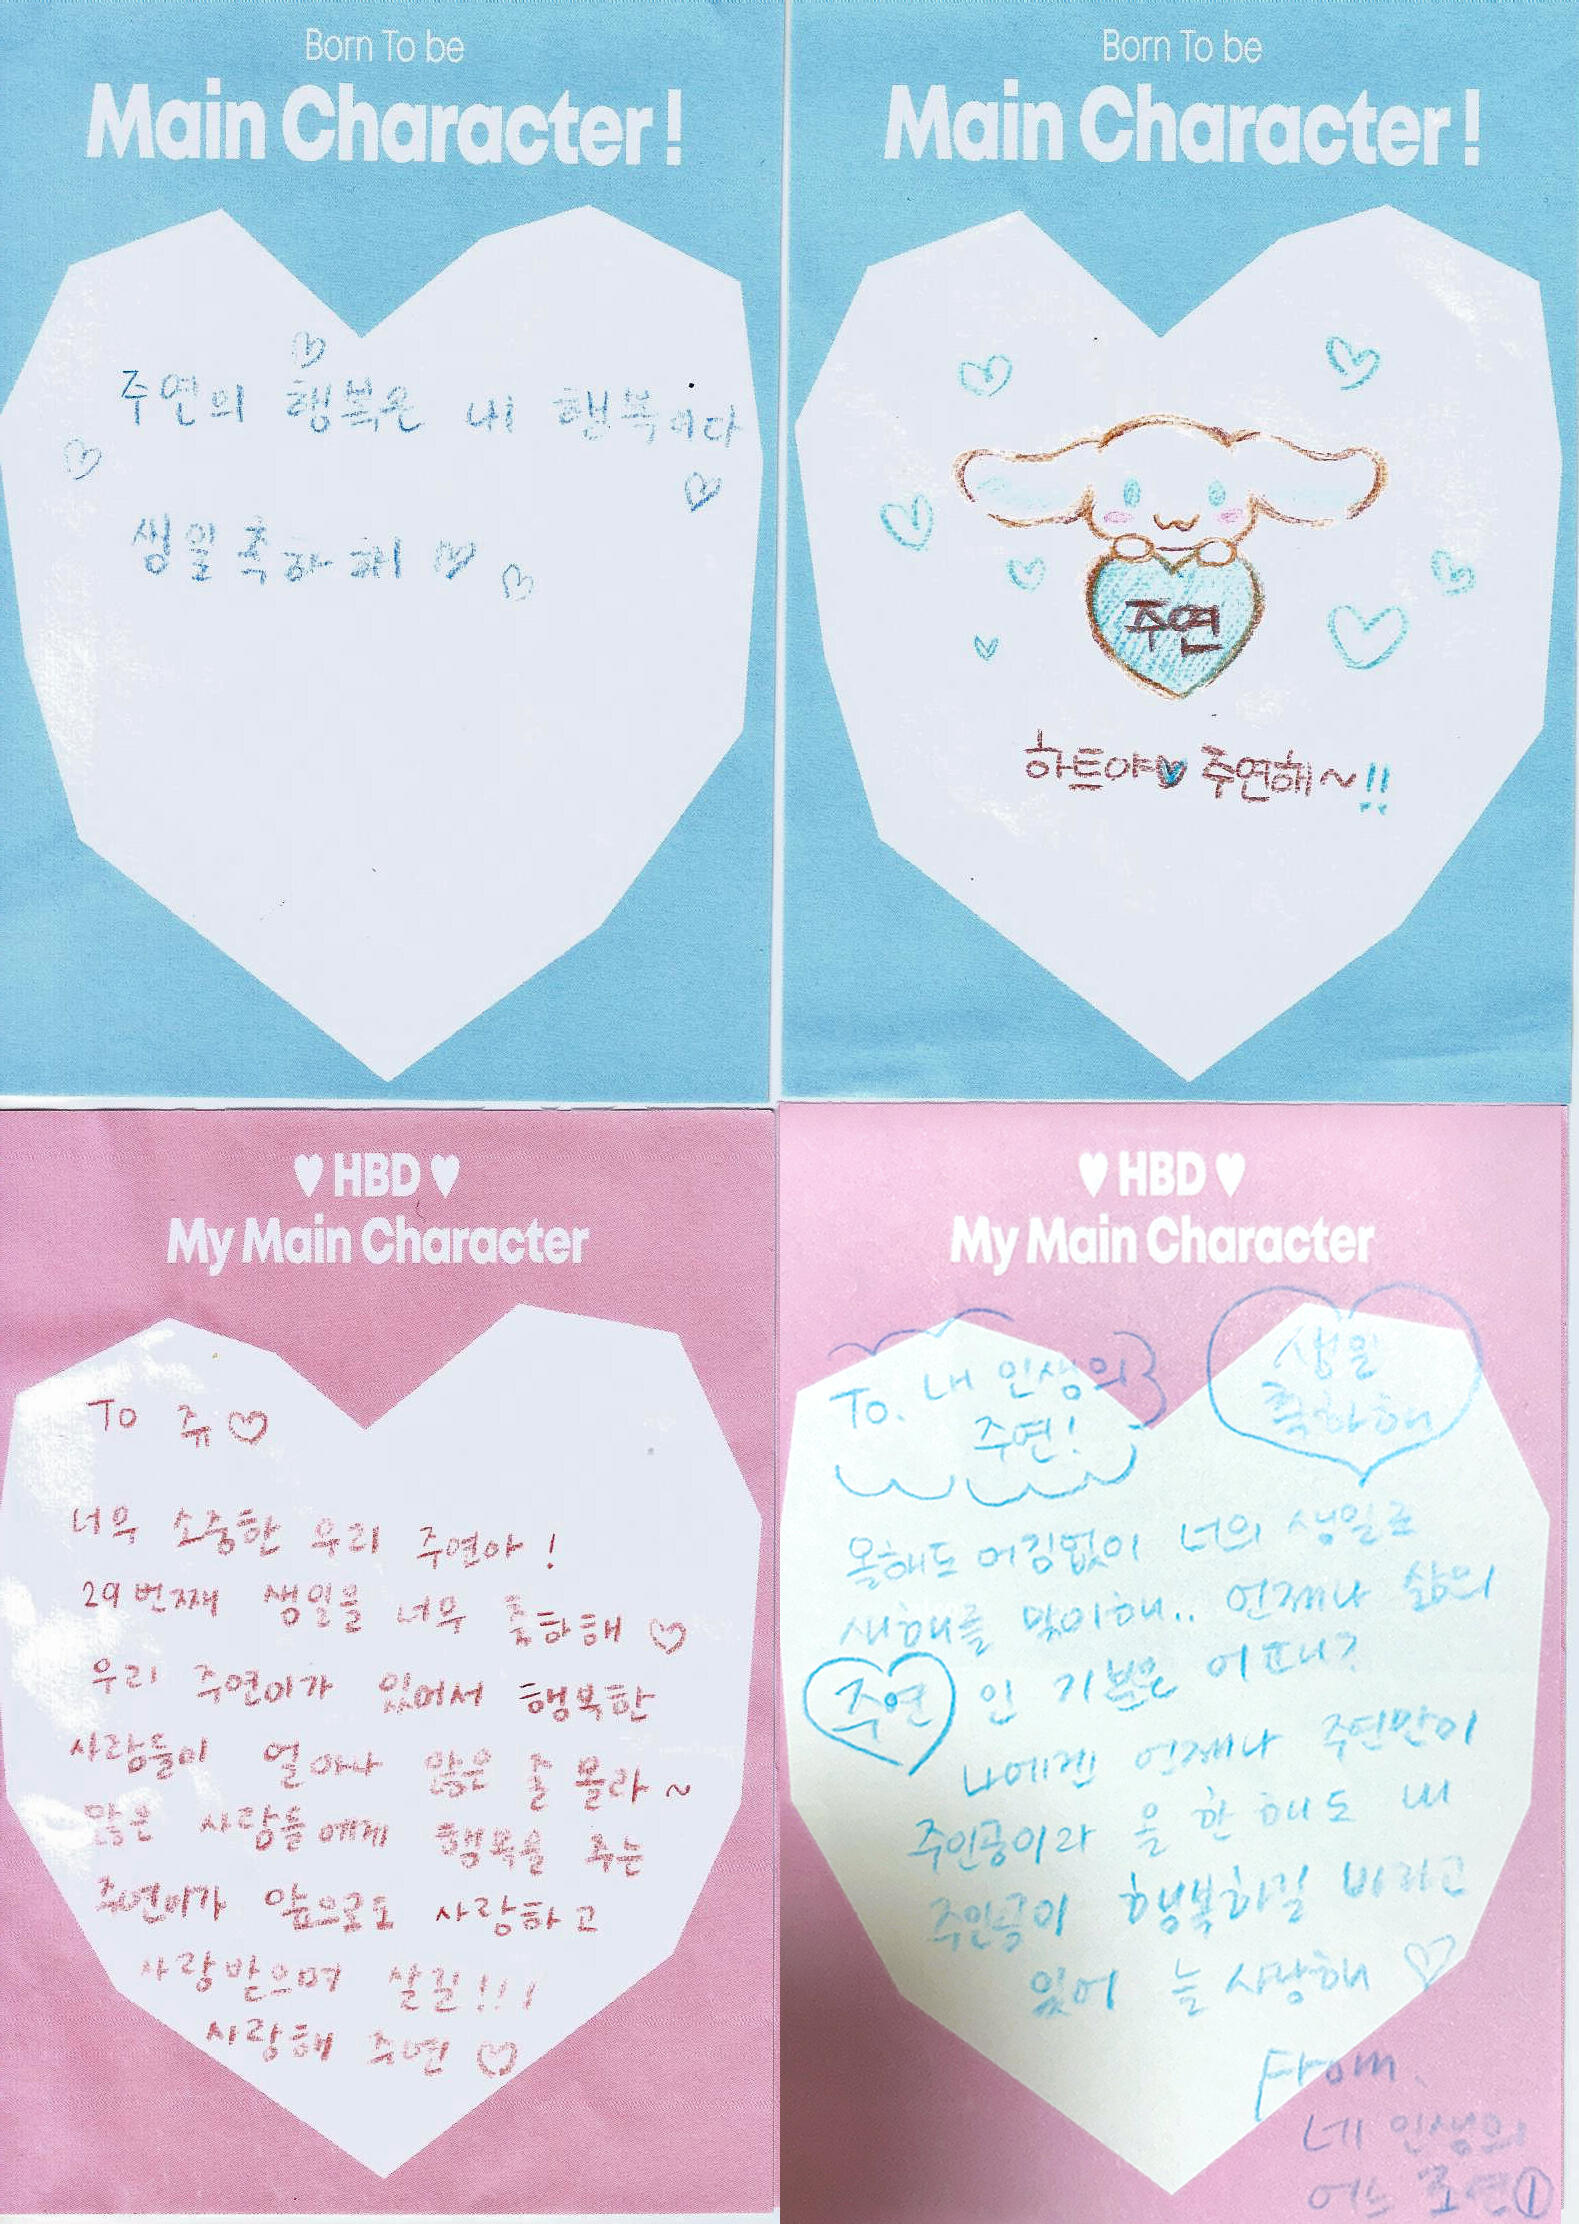 Born To be
Main Character!
주연의 행복은 내 행복이다
생일축하해
Born To be
Main Character!
주연
하트야 주연해~!!
♥ HBD ♥
My Main Character
To 쥬♡
너무 소중한 우리 주연아!
29번째 생일을 너무 축하해♡
우리 주연이가 있어서 행복한
사람들이 얼마나 많은 줄 몰라~
많은 사람들에게 행복을 주는
주연이가 앞으로도 사랑하고
사랑받으며 살길!!!
사랑해 주연♡
♥ HBD ♥
My Main Character
To. 내 인생의
주연!
생일
축하해
올해도 어김없이 너의 생일로
새해를 맞이해.. 언제나 삶의
주연인 기분은 어떠니?
나에겐 언제나 주연만이
주인공이라 올 한 해도 내
주인공이 행복하길 바라고
있어 늘 사랑해♡
From.
네 인생의
어느 조연①